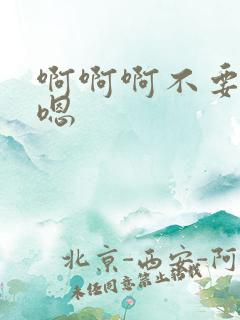 啊啊啊不要
嗯
北京-西安-阿
未经同意禁止转载